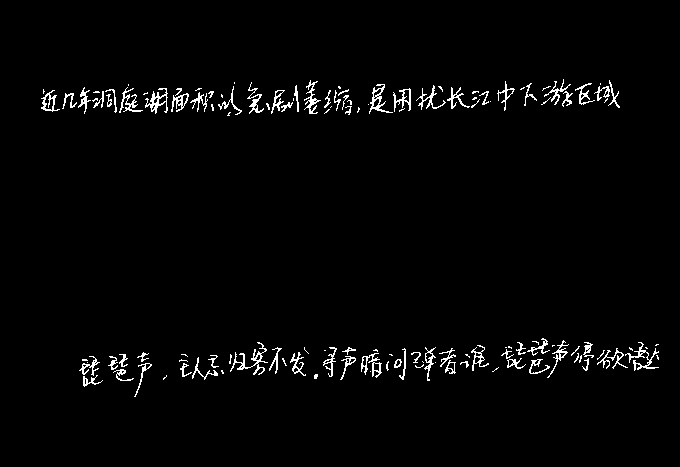 近几年洞庭湖面积的急剧萎缩,是困扰长江中下游区域
琵琶声,主人忘归客不发.寻声暗问弹者谁,琵琶声停欲语迟